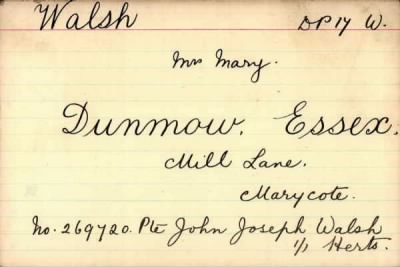 Walsh DP 17 W.
Mrs Mary.
Dunmow. Essex.
Mill Lane.
Marycote.
No. 269720. Pte John Joseph Walsh
1/1 Herts.